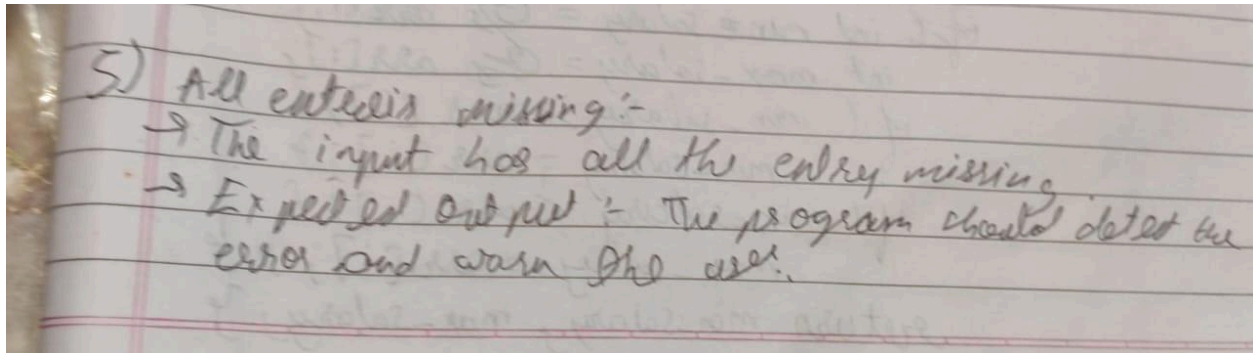 5) All enteris missing :-
→ The input has all the entry missing.
→ Expected output :- The program should detet the
error and warn the user.